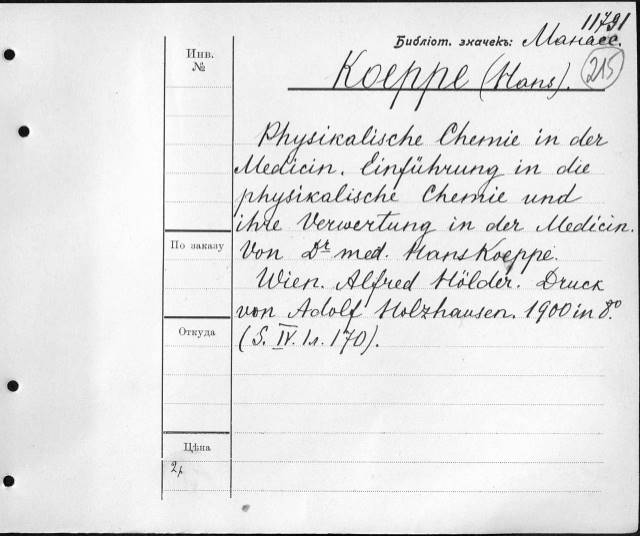 11791
Библіот. значекъ: Манасс.
Инв.
№
Koeppe (Hans).
215
Physikalische Chemie in der
Medicin. Einführung in die
physikalische Chemie und
ihre Verwertung in der Medicin.
Von Dr med. Hans Koeppe.
Wien. Alfred Hölder. Druck
von Adolf Holzhausen. 1900 in 8.º
(S. IV. 1л. 170).
По заказу
Откуда
Цѣна
2р